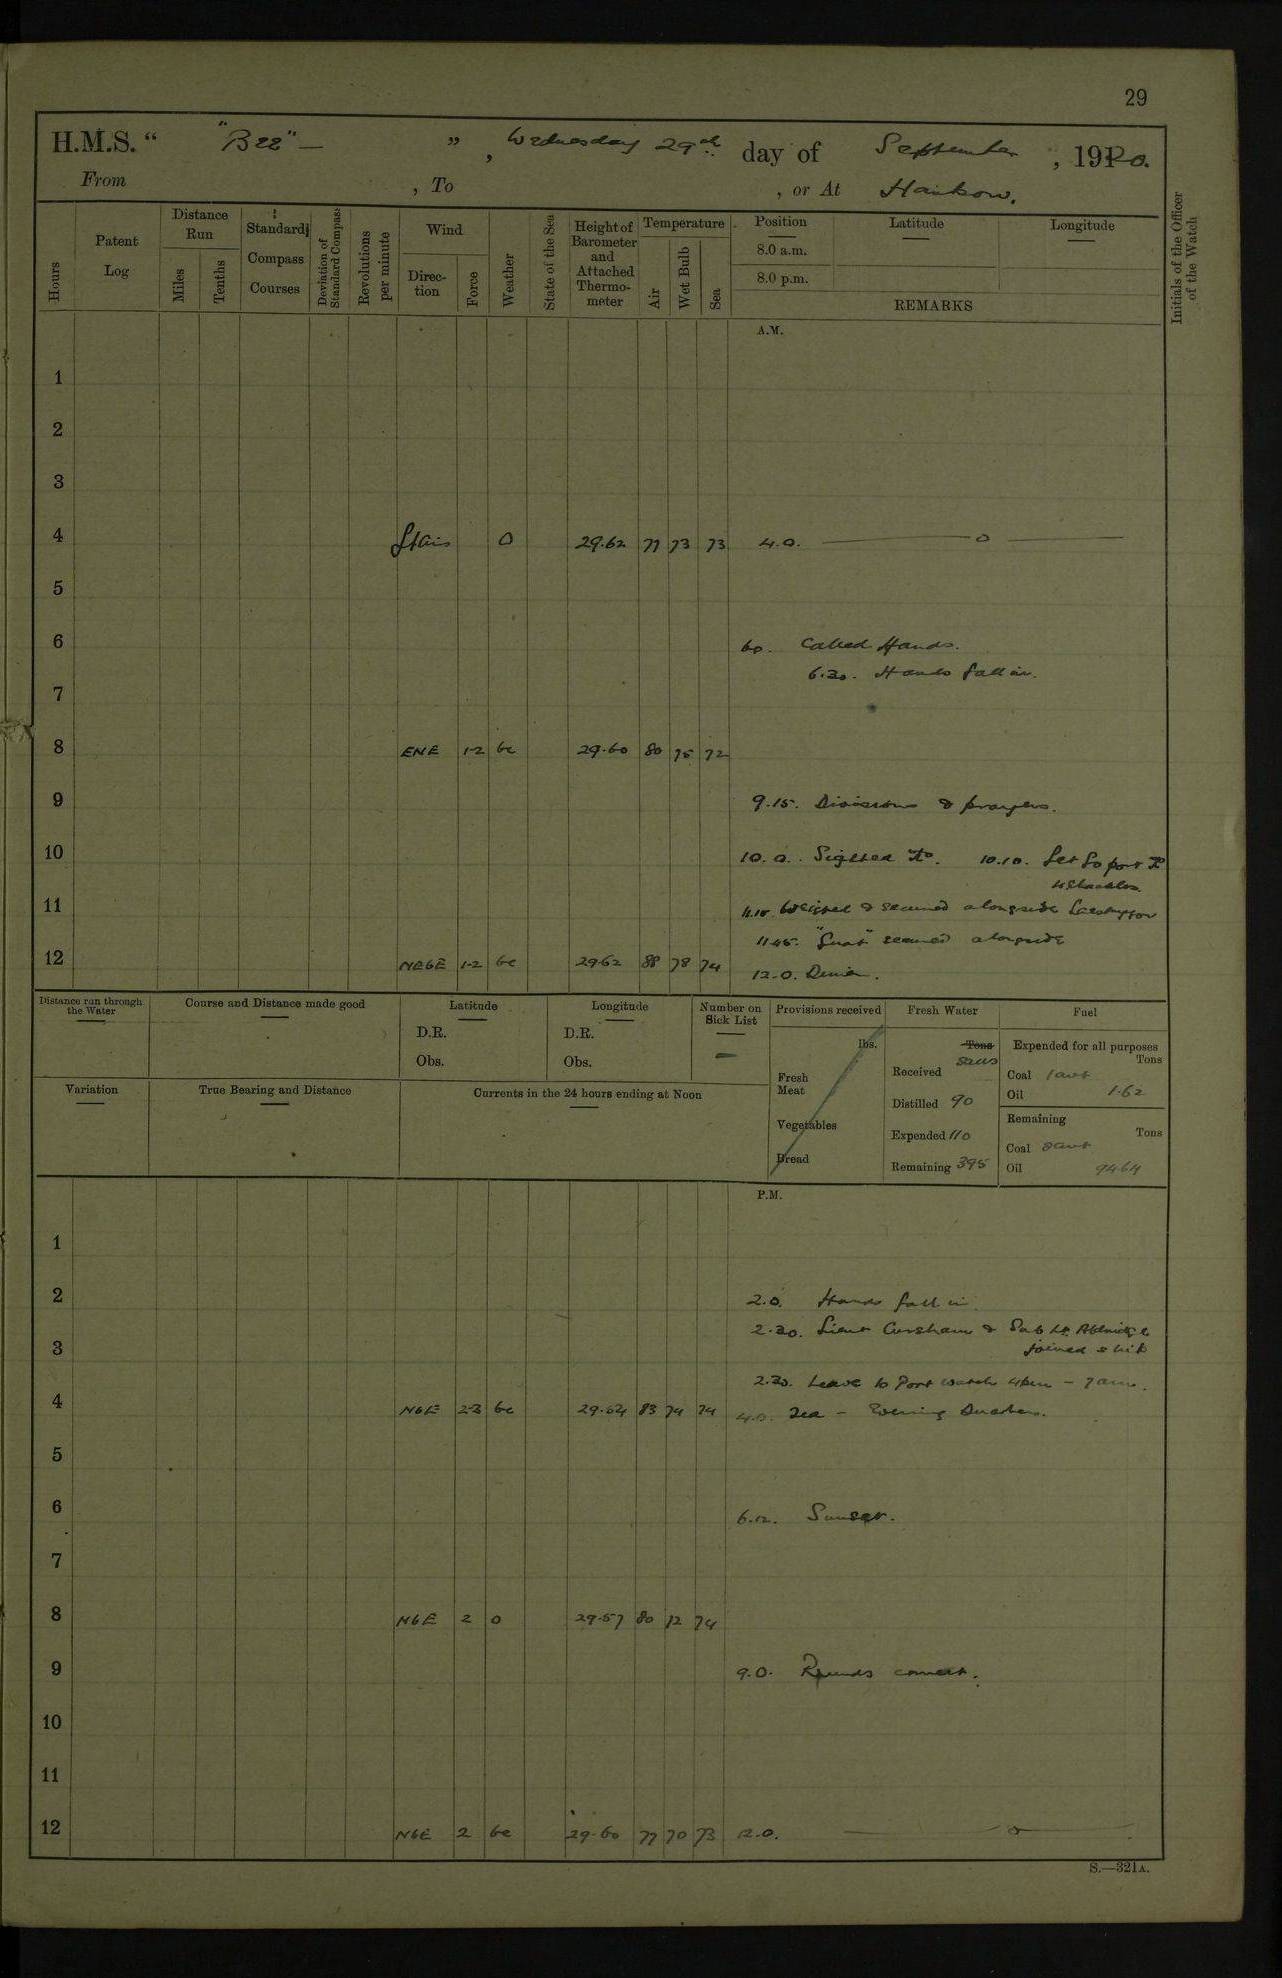 29
H.M.S. " "Bee" — ", Wednesday 29th day of September, 1920.
From , To , or At Hankow.
Hours
Patent Log
Distance Run
Miles
Tenths
Standard Compass Courses
Deviation of Standard Compass
Revolutions per minute
Wind
Direction
Force
Weather
State of the Sea
Height of Barometer and Attached Thermometer
Temperature
Air
Wet Bulb
Sea
Position
8.0 a.m.
8.0 p.m.
Latitude
Longitude
REMARKS
Initials of the Officer of the Watch
A.M.
1
2
3
4 O 29.62 77 73 73 4.0. — o —
5
6 6.0. Called Hands.
6.30. Hands fall in.
7
8 ENE 1-2 bc 29.60 80 75 72
9 9.15. Divisions & prayers.
10 10.0. Sighted 10.10. Let go port
4 shackles.
11 11.10. Weighed & secured alongside
11.45. "Gnat" secured alongside
12 NEbE 1-2 bc 29.62 88 78 74 12.0. Dinner.
Distance run through the Water
Course and Distance made good
Latitude
D.R.
Obs.
Longitude
D.R.
Obs.
Number on Sick List
—
Provisions received
lbs.
Fresh Meat
Vegetables
Bread
Fresh Water
Tons
Received
Distilled 90
Expended 110
Remaining 395
Fuel
Expended for all purposes
Tons
Coal 1 cwt
Oil 1.62
Remaining
Tons
Coal
Oil 94.64
Variation
True Bearing and Distance
Currents in the 24 hours ending at Noon
P.M.
1
2 2.0. Hands fall in.
2.30. Lieut Cursham & Sub Lt.
joined ship
3
2.30. Leave to Port watch 4pm – 7am.
4 NbE 2-3 bc 29.54 83 74 74 4.0. Tea – Evening Quarters.
5
6 6.12. Sunset.
7
8 NbE 2 o 29.57 80 72 74
9 9.0. Rounds correct.
10
11
12 NbE 2 bc 29.60 77 70 73 12.0. — o —
S.—321A.